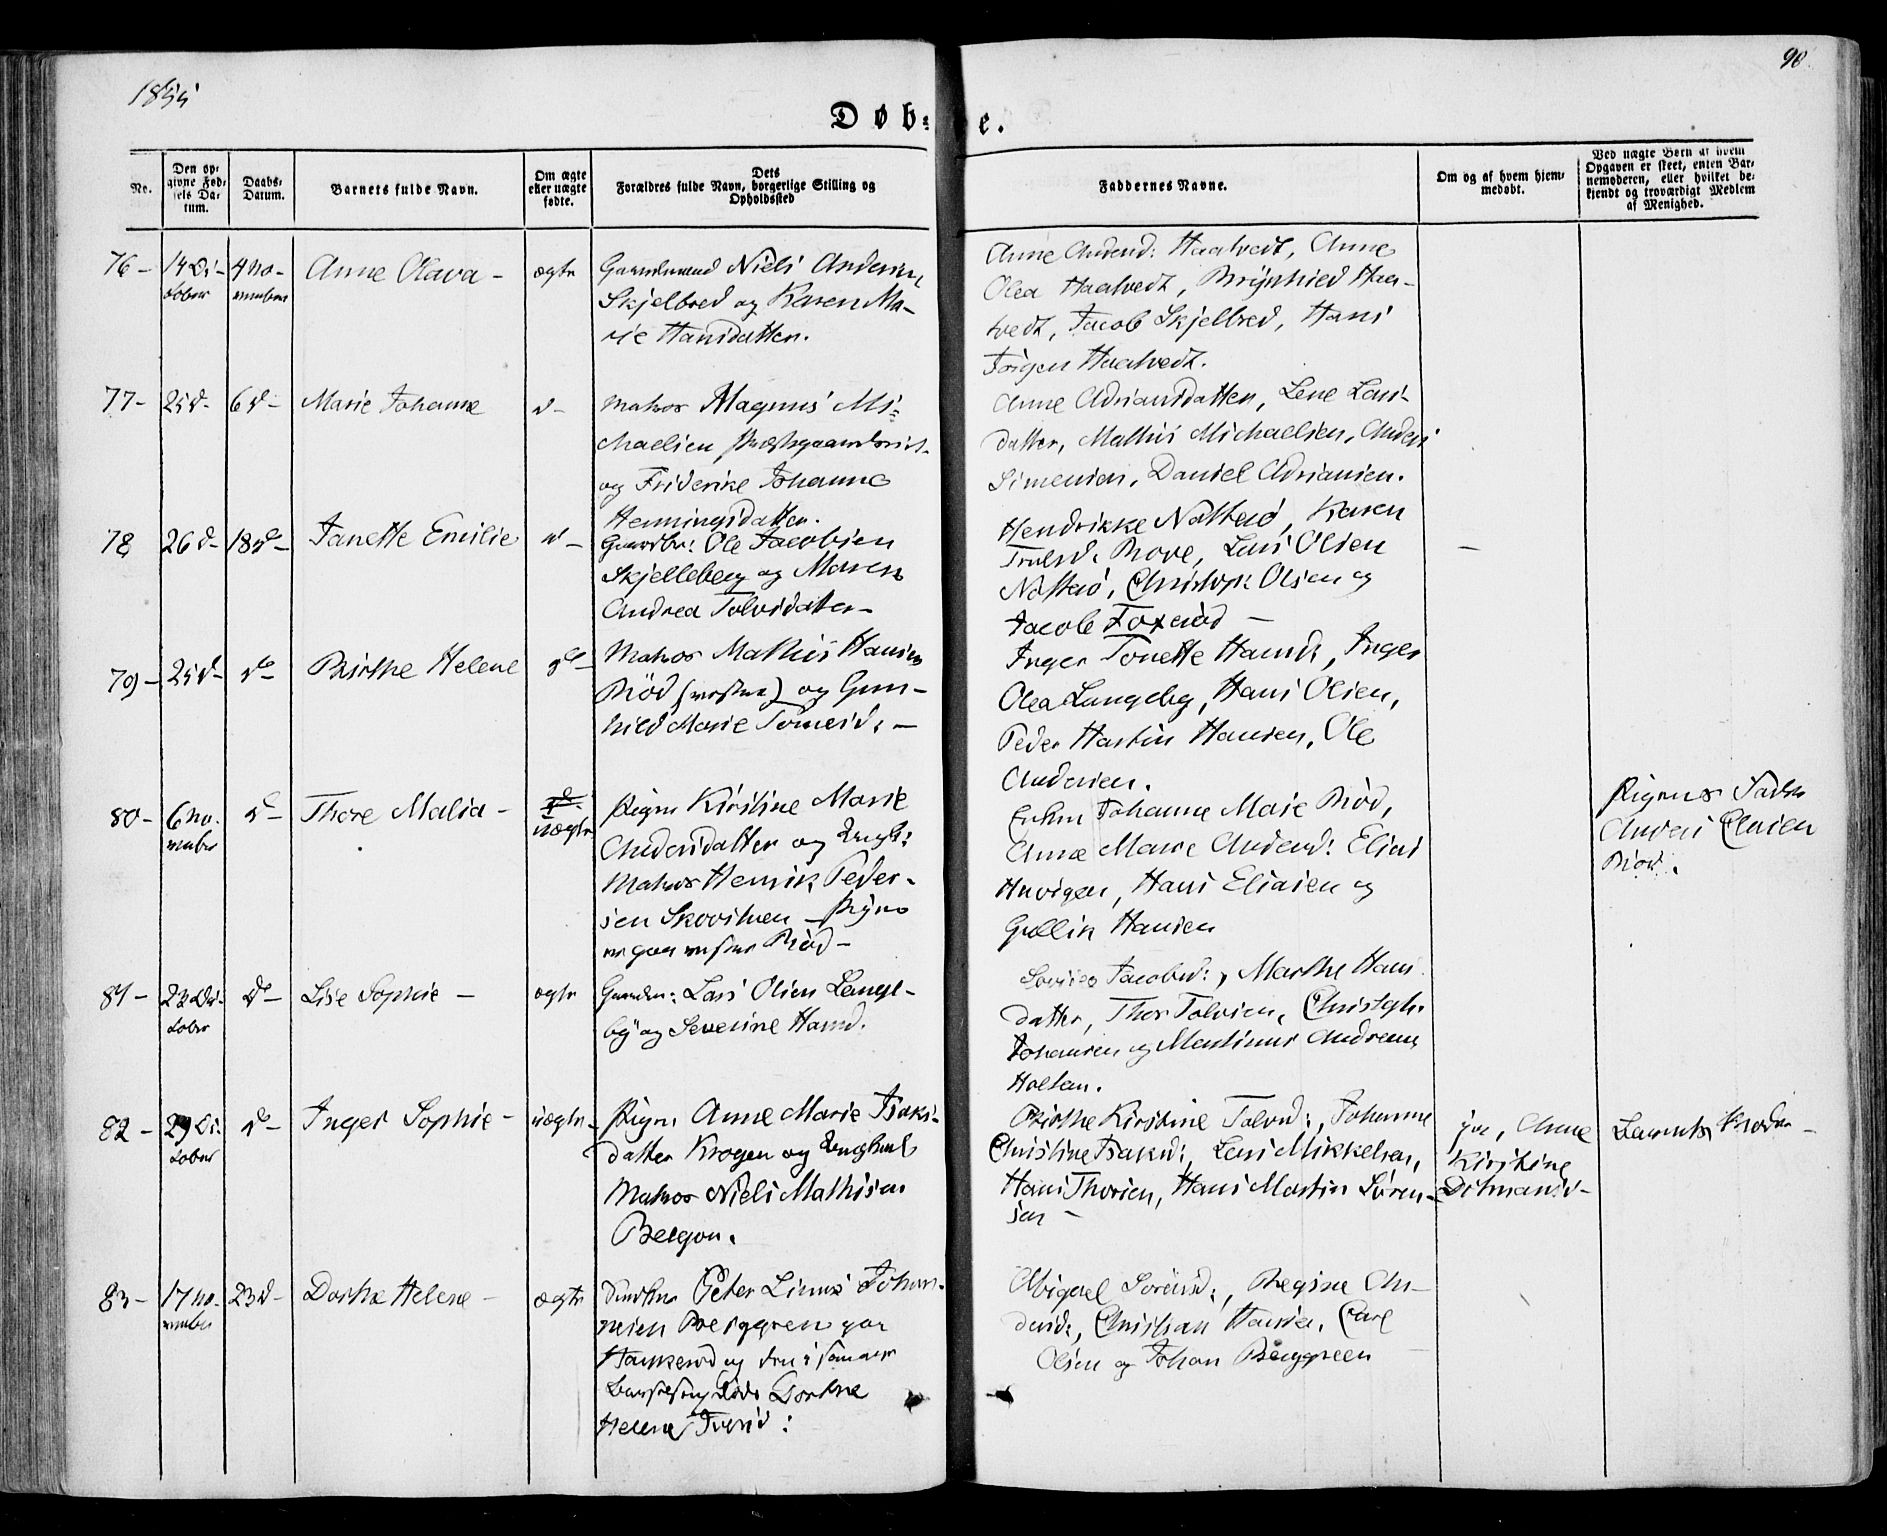 1855
90.
Døb-e.
No.
Den op-
givne Fød-
sels Da-
tum.
Daabs-
Datum.
Barnets fulde Navn.
Om ægte
eller uægte
fødte.
Dets
Forældres fulde Navn, borgerlige Stilling og
Opholdssted
Faddernes Navne.
Om og af hvem hjem-
medøbt.
Ved uægte Børn af hvem
Opgaven er skeet, enten Bar-
nemoderen, eller hvilket be-
kjendt og troværdigt Medlem
af Menighed.
76 - 14 Oc-
tober
4 No-
vember
Anne Olava -
ægte
Gaardmand Niels Andersen
Skjelbred og Karen Ma-
rie Hansdatter.
Anne Andersd: Haatvedt, Anne
Olea Haatvedt, Brynhild Haa-
tvedt, Jacob Skjelbred, Hans
Jørgen Haatvedt.
77 - 25 d - 6 d - Marie Johanne
d -
Matros Magnus Mi-
chaelsen
og Friderike Johanne
Henningsdatter.
Anne Adriansdatter, Lene Lars-
datter, Mathis Michaelsen, Anders
Simensen, Daniel Adriansen.
78 26 d - 18 d - Janette Emilie
d -
Gaardbr: Ole Jacobsen
Skjelleberg og Maren
Andrea Tolvsdatter -
Hendrikke Nøtterø, Karen
Trulsd: Bove, Lars Olsen
Nøtterø, Christoph Olsen og
Jacob Foxerød -
-
79 - 25 d - do - Birthe Helene
do -
Matros Mathis Hansen
Riød (vestre) og Gun-
hild Marie Tomesd: -
Inger Tonette Hansd:, Inger
Olea Langeby, Hans Olsen,
Peder Martin Hansen, Ole
Andersen.
80 - 6 No-
vember
do -
Thore Malia -
uægte
Pigen Kirstine Marie
Andersdatter og Ungk:
Matros Henrik Peder-
sen Skovstuen - Pigen
er paa vestre Riød -
Enken Johanne Marie Riød,
Anne Marie Andersd: Elise
Hans Eliasen og
Gullik Hansen
Pigens Fader
Anders Claien
Riød.
81 - 23 Oc-
tober
do -
Lise Sophie -
ægte
Gaardm: Lars Olsen Lange-
by og Severine Hansd.
Jacobsd:, Marthe Hans-
datter, Thor Tolvsen, Christoph
Johansen og Martinus Andreas
Holtan.
82 - 29 Oc-
tober
do -
Inger Sophie -
uægte -
Pigen Anne Marie Isaks-
datter Krogen og Ungkarl
Matros Niels Mathisen
Bergan.
Birthe Kirstine Tolvsd:, Johanne
Christine Isaksd:, Lars Mikkelsen,
Hans Thorsen, Hans Martin Søren-
sen -
ja, Anne
Kirstine
Ditmansd -
Barnets Moder -
83 - 17 No-
vember
23 d - Dorthe Helene -
ægte
Peter Linus Johan-
nesen Berggren paa
Haukerød og den i samme
Barselseng døde Dorthe
Helene Iversd:
Abigael Sørensd:, Regine An-
dersd:, Christian Hansen, Carl
Olsen og Johan Berggreen